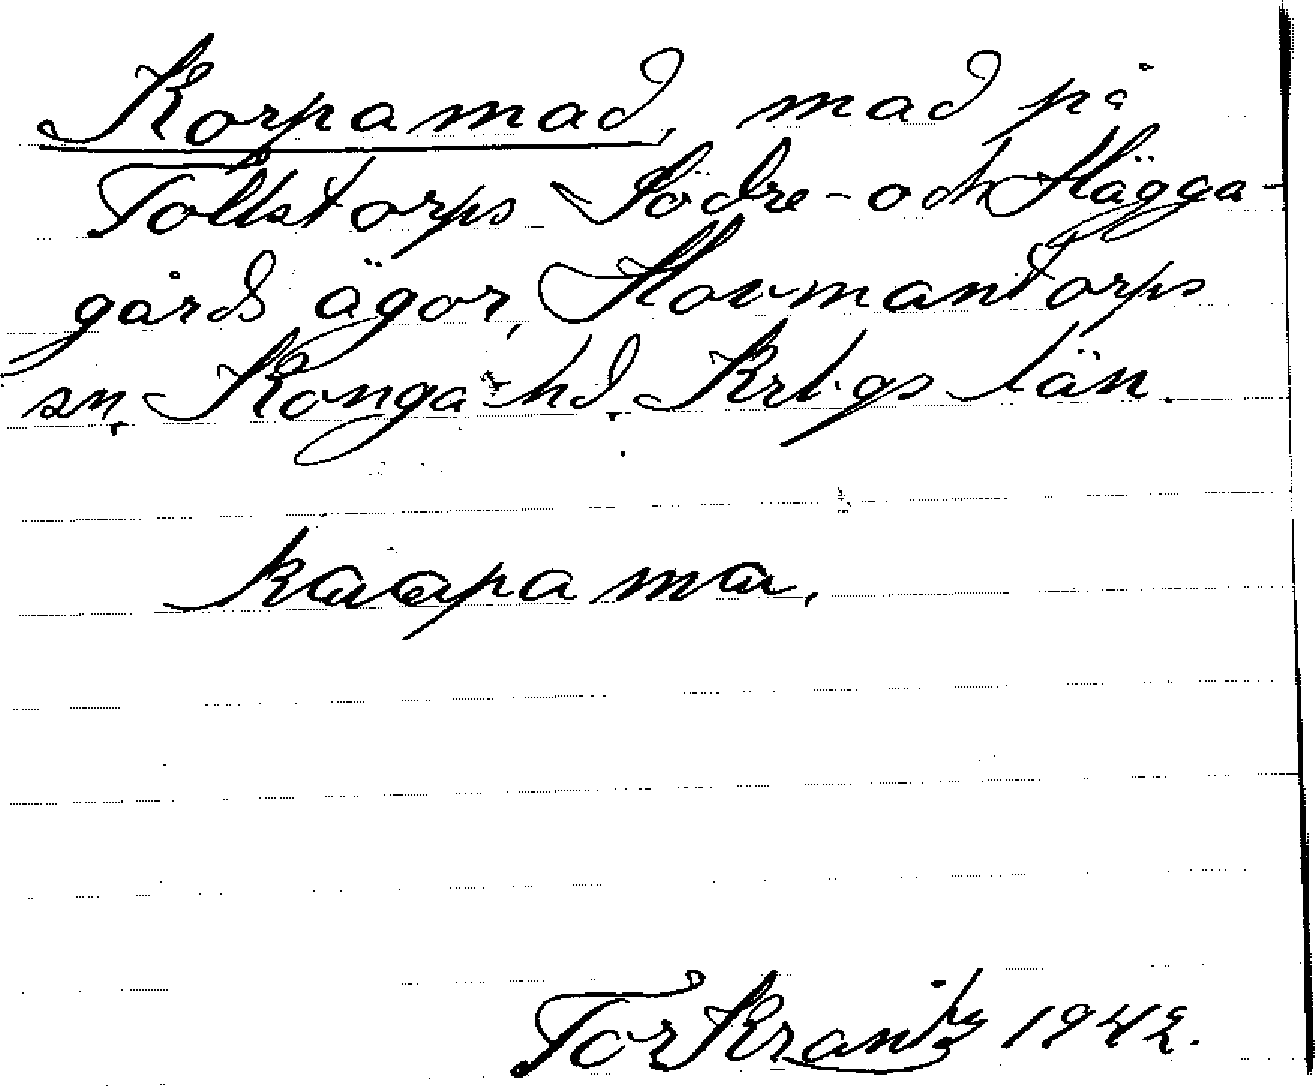 Korpamad, mad på
Tollstorps Södre- och Hägga-
gårds ägor, Hovmantorps
sn. Konga hd. Krb.gs län.
kaapama,
Tor Krantz 1942.